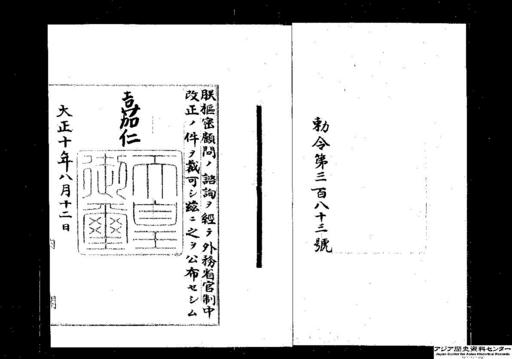 勅令第三百八十三號
朕樞密顧問ノ諮詢ヲ經テ外務省官制中
改正ノ件ヲ裁可シ玆ニ之ヲ公布セシム
嘉仁
天皇
御璽
大正十年八月十二日
アジア歴史資料センター
Japan Center for Asian Historical Records